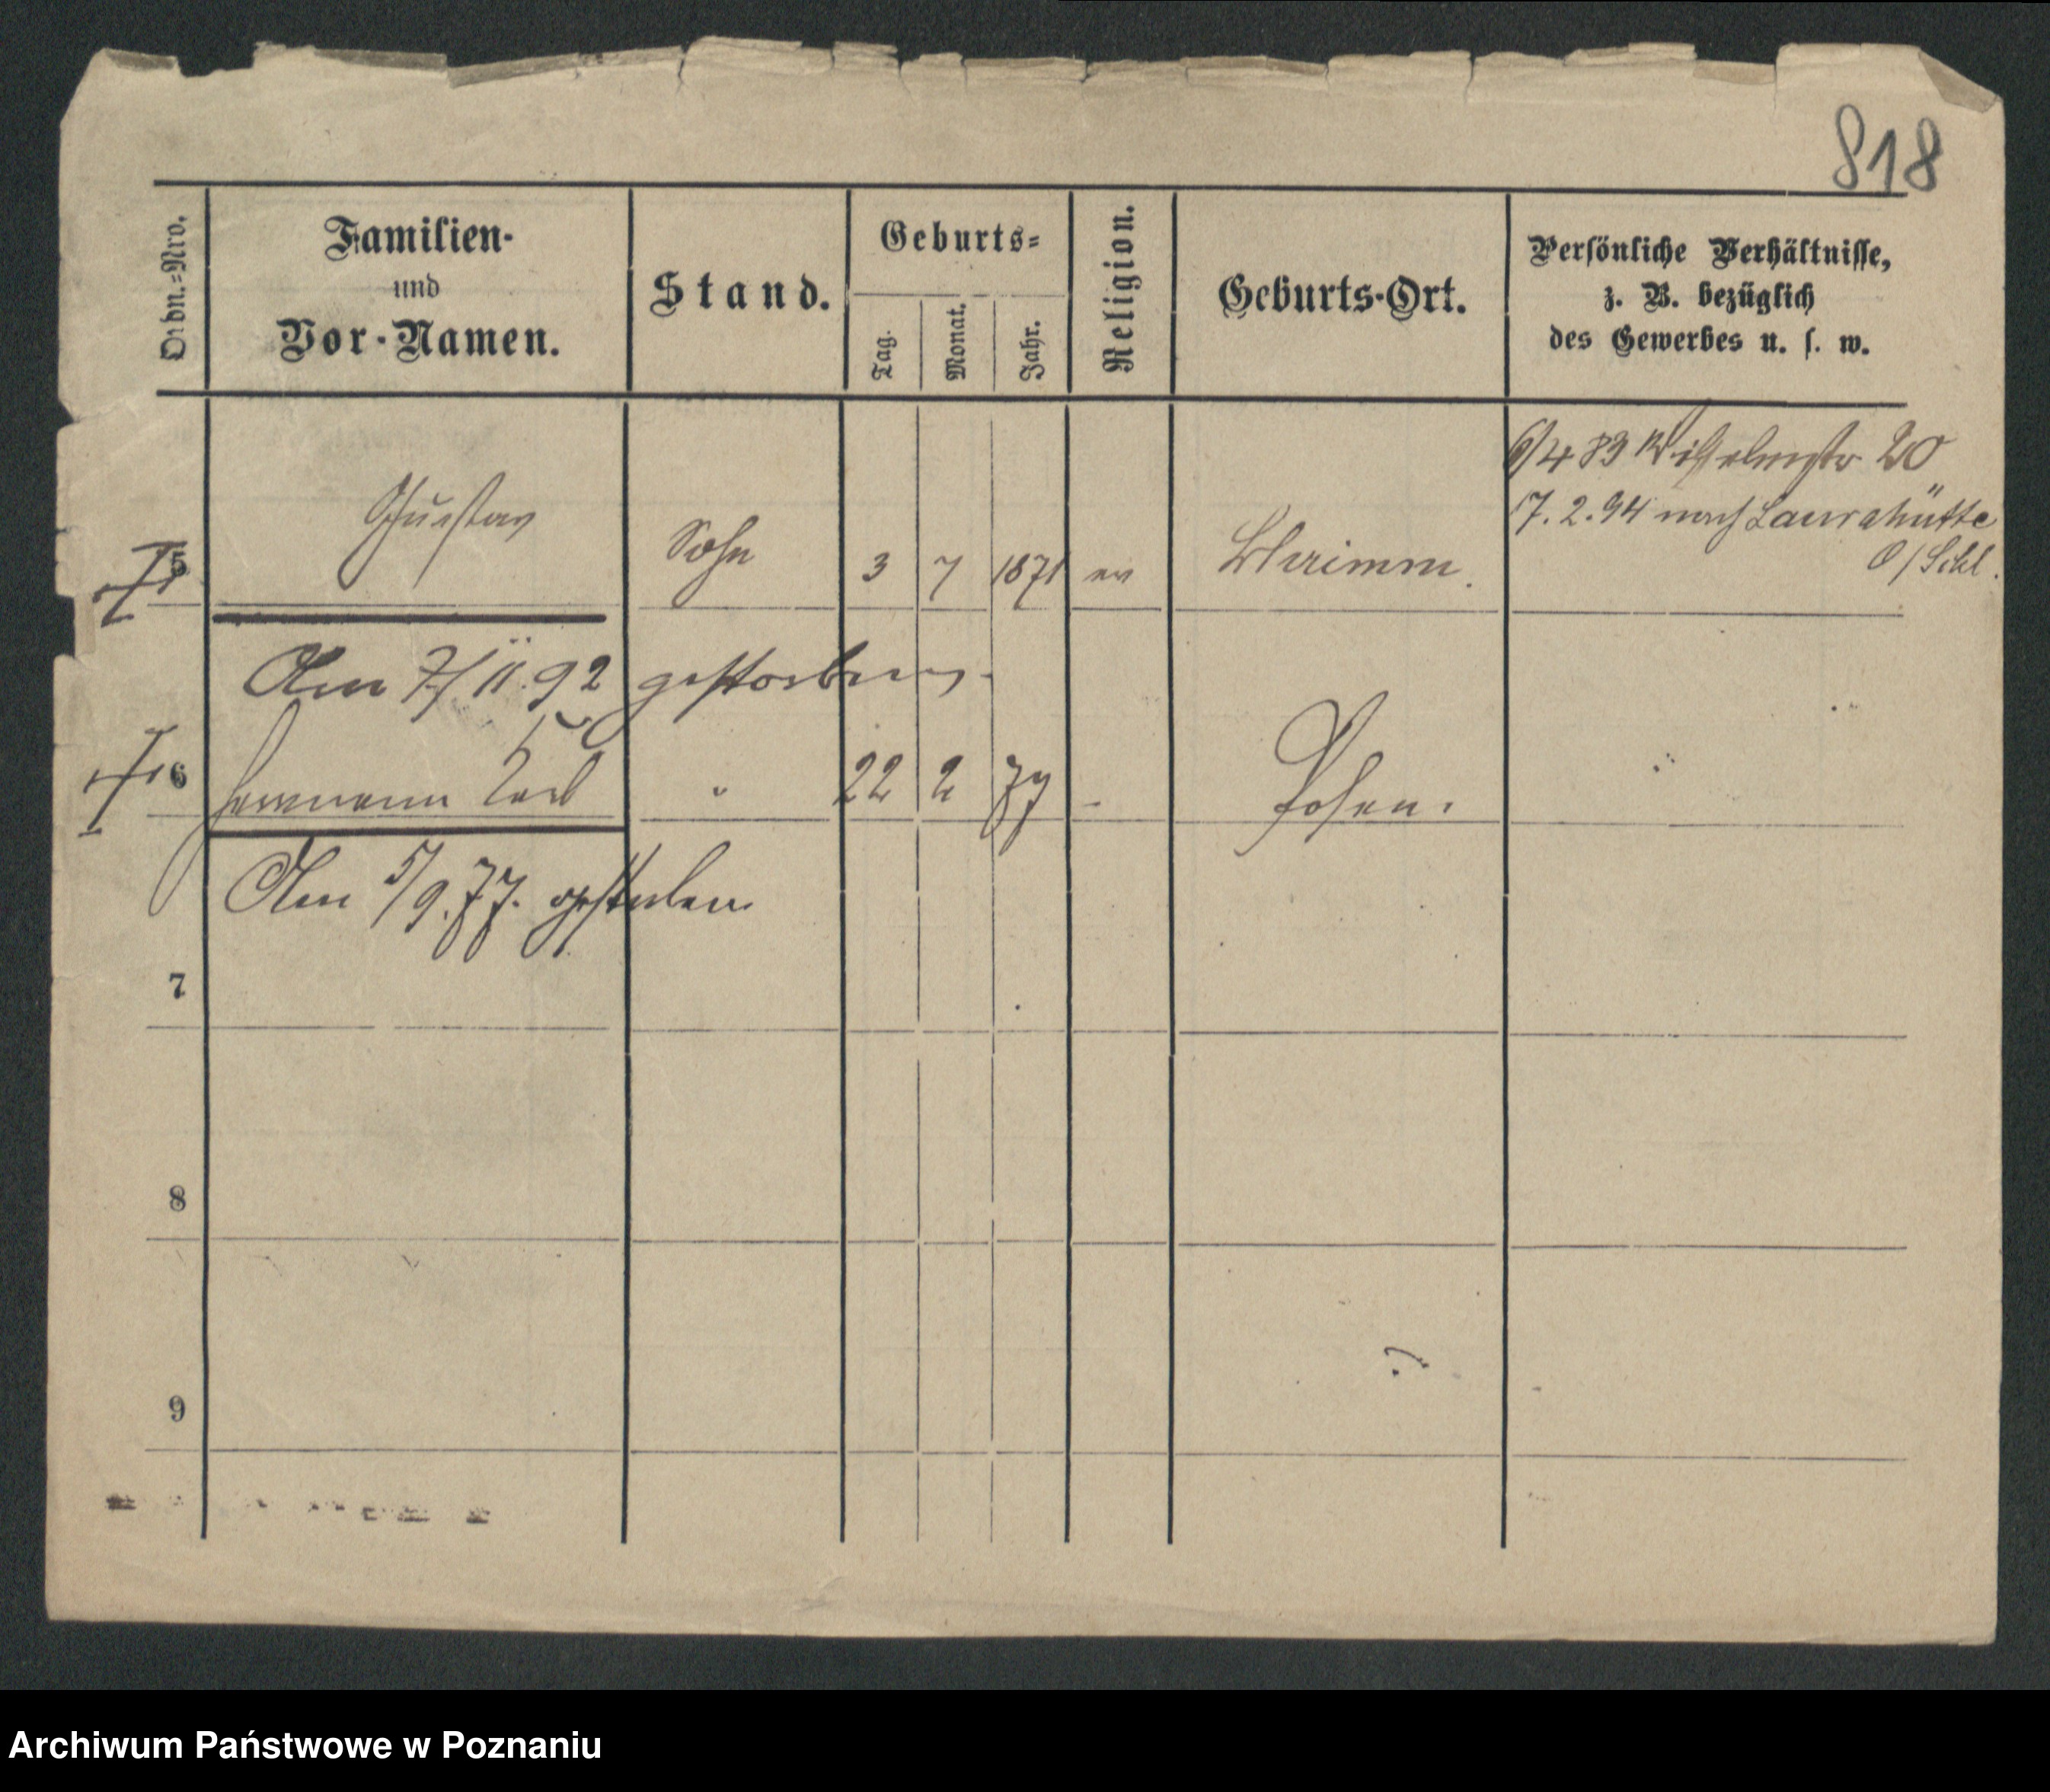 818
Ordn.=Nro.
Familien-
und
Vor-Namen.
Stand.
Geburts=
Tag.
Monat.
Jahr.
Religion.
Geburts-Ort.
Persönliche Verhältnisse,
z. B. bezüglich
des Gewerbes u. s. w.
6/4 83 Wilhelmstr 20
17.2.94 nach Laurahütte
O/Schl.
5 Gustav Sohn 3 7 1871 ev Schrimm.
Am 7/11.92 gestorben.
6 Hermann Carl " 22 2 77 - Posen.
Am 5/9.77. gestorben
7
8
9
Archiwum Państwowe w Poznaniu